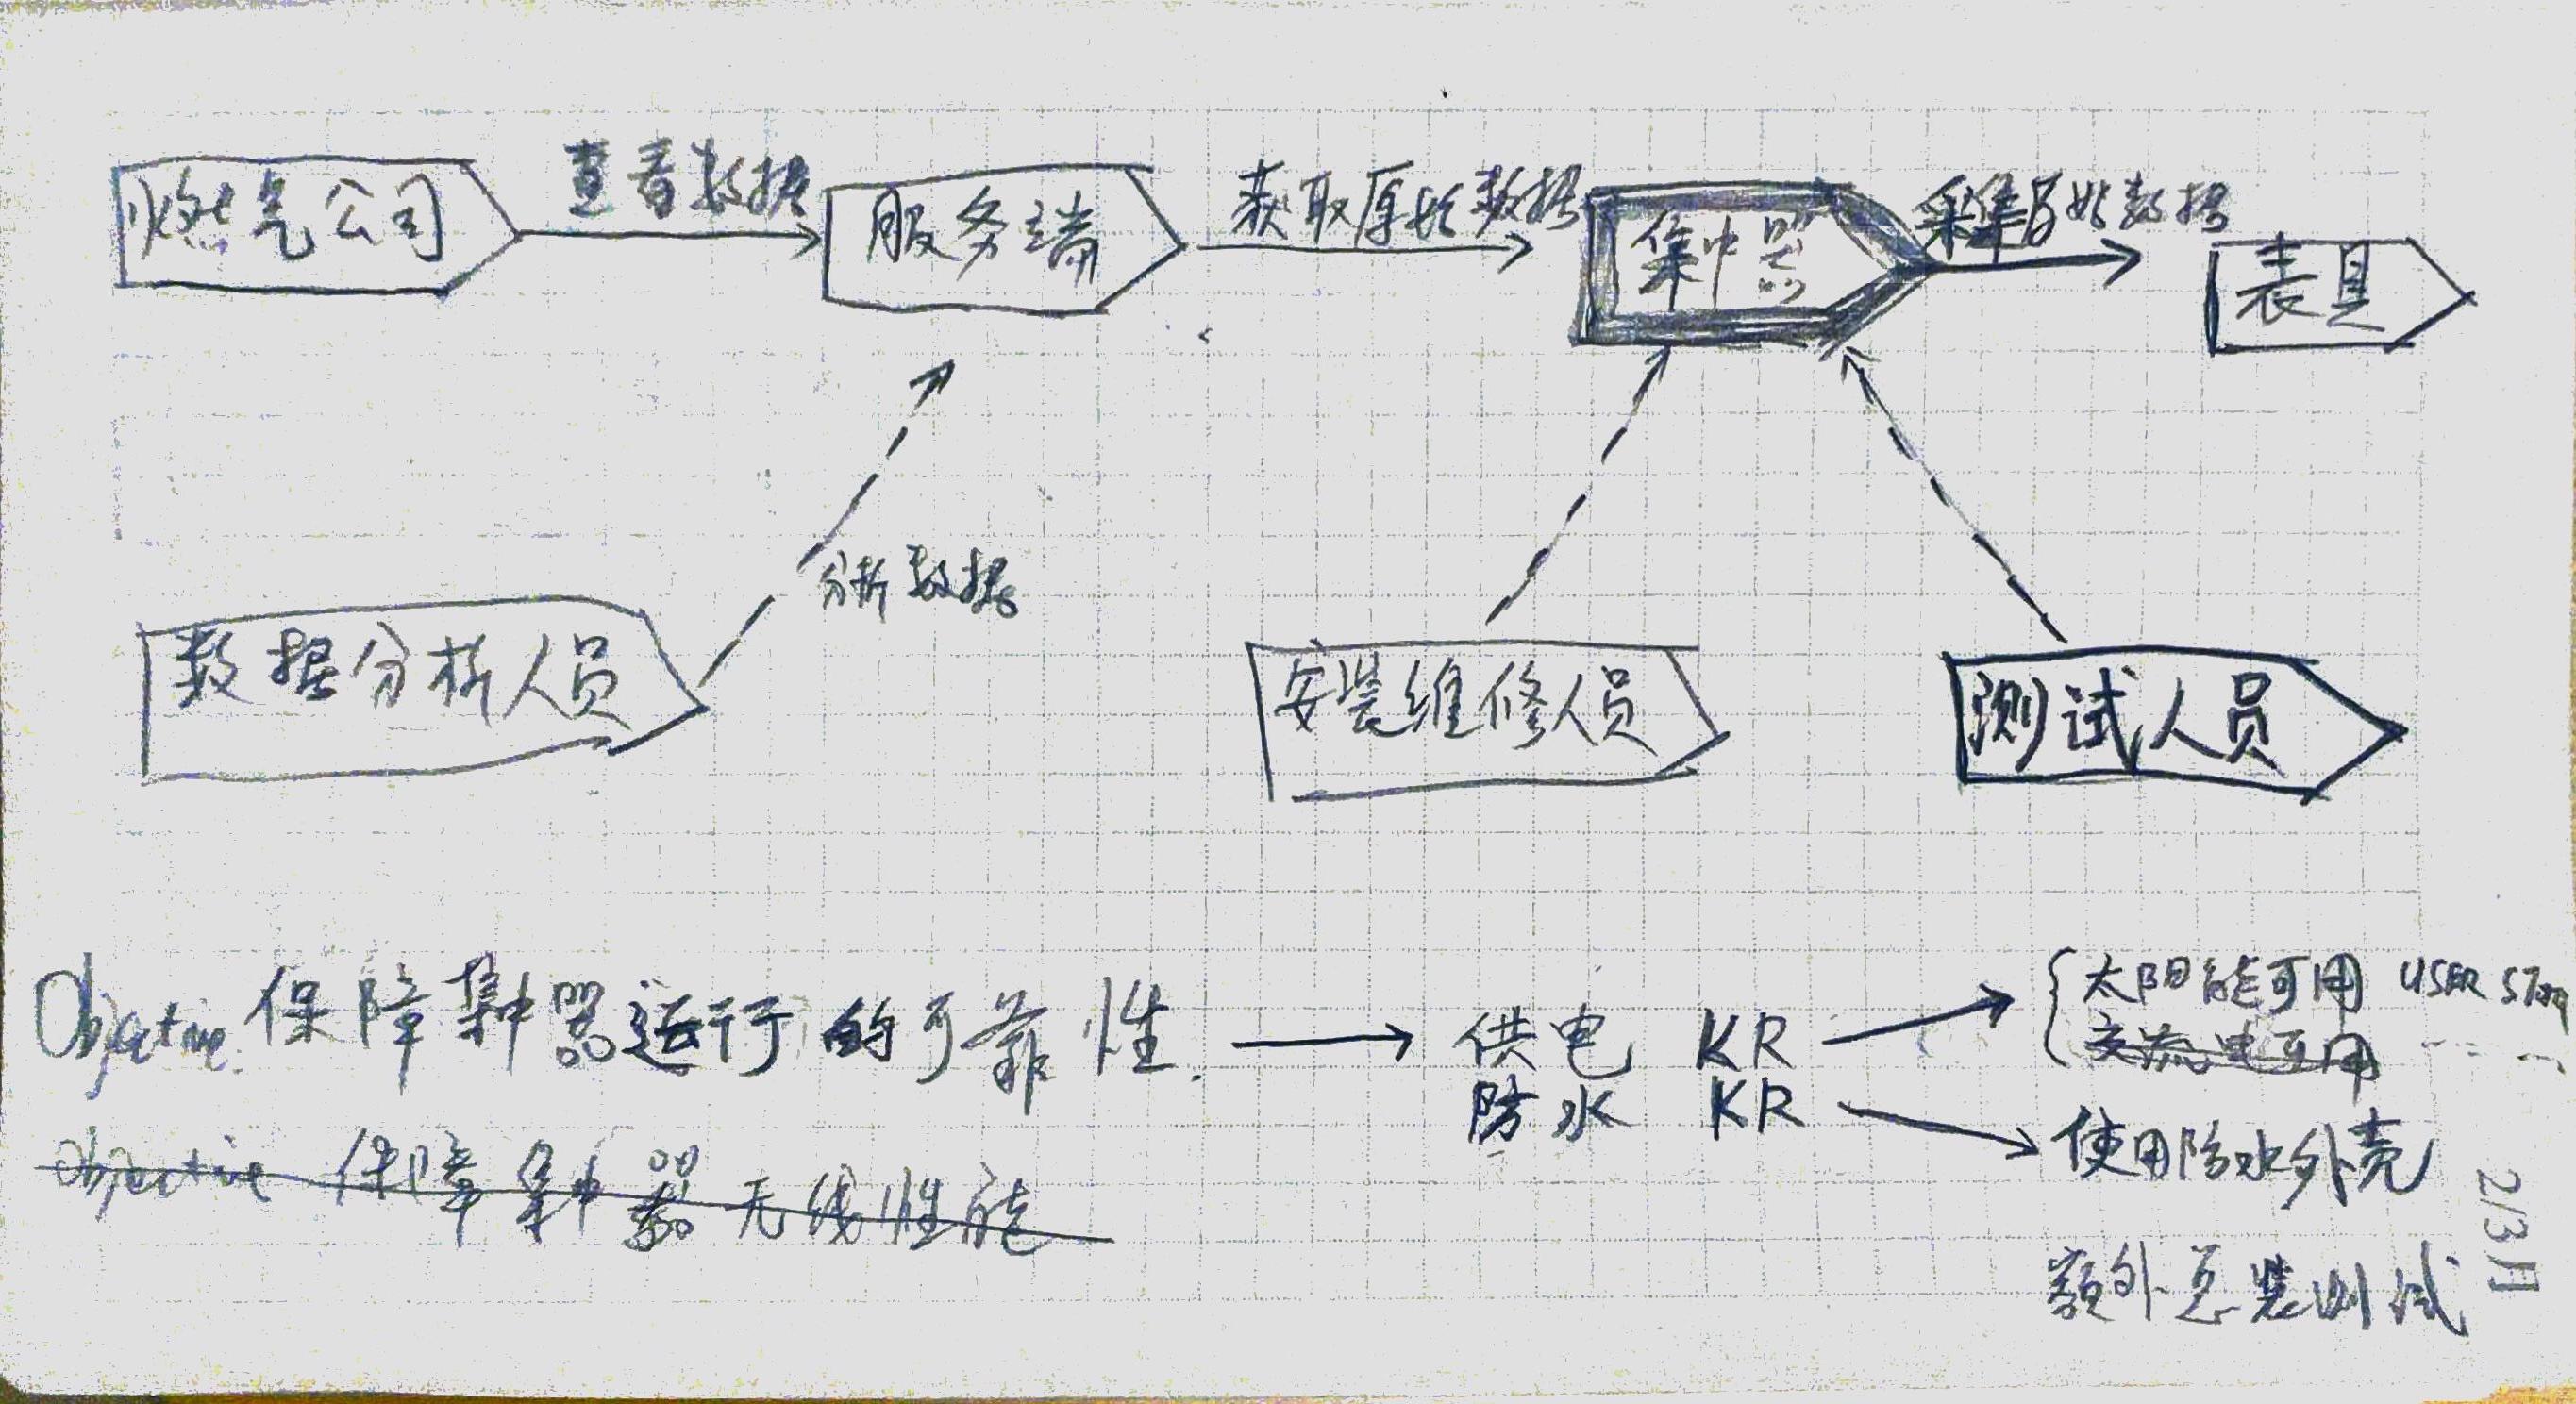 燃气公司
查看数据
服务端
获取原始数据
集中器
采集原始数据
表具
分析数据
数据分析人员
安装维修人员
测试人员
Objective 保障集中器运行的可靠性
供电 KR
防水 KR
太阳能可用 USER STORY
交流电可用
使用防水外壳
Objective 保障集中器无线性能
额外总装测试
2/3月